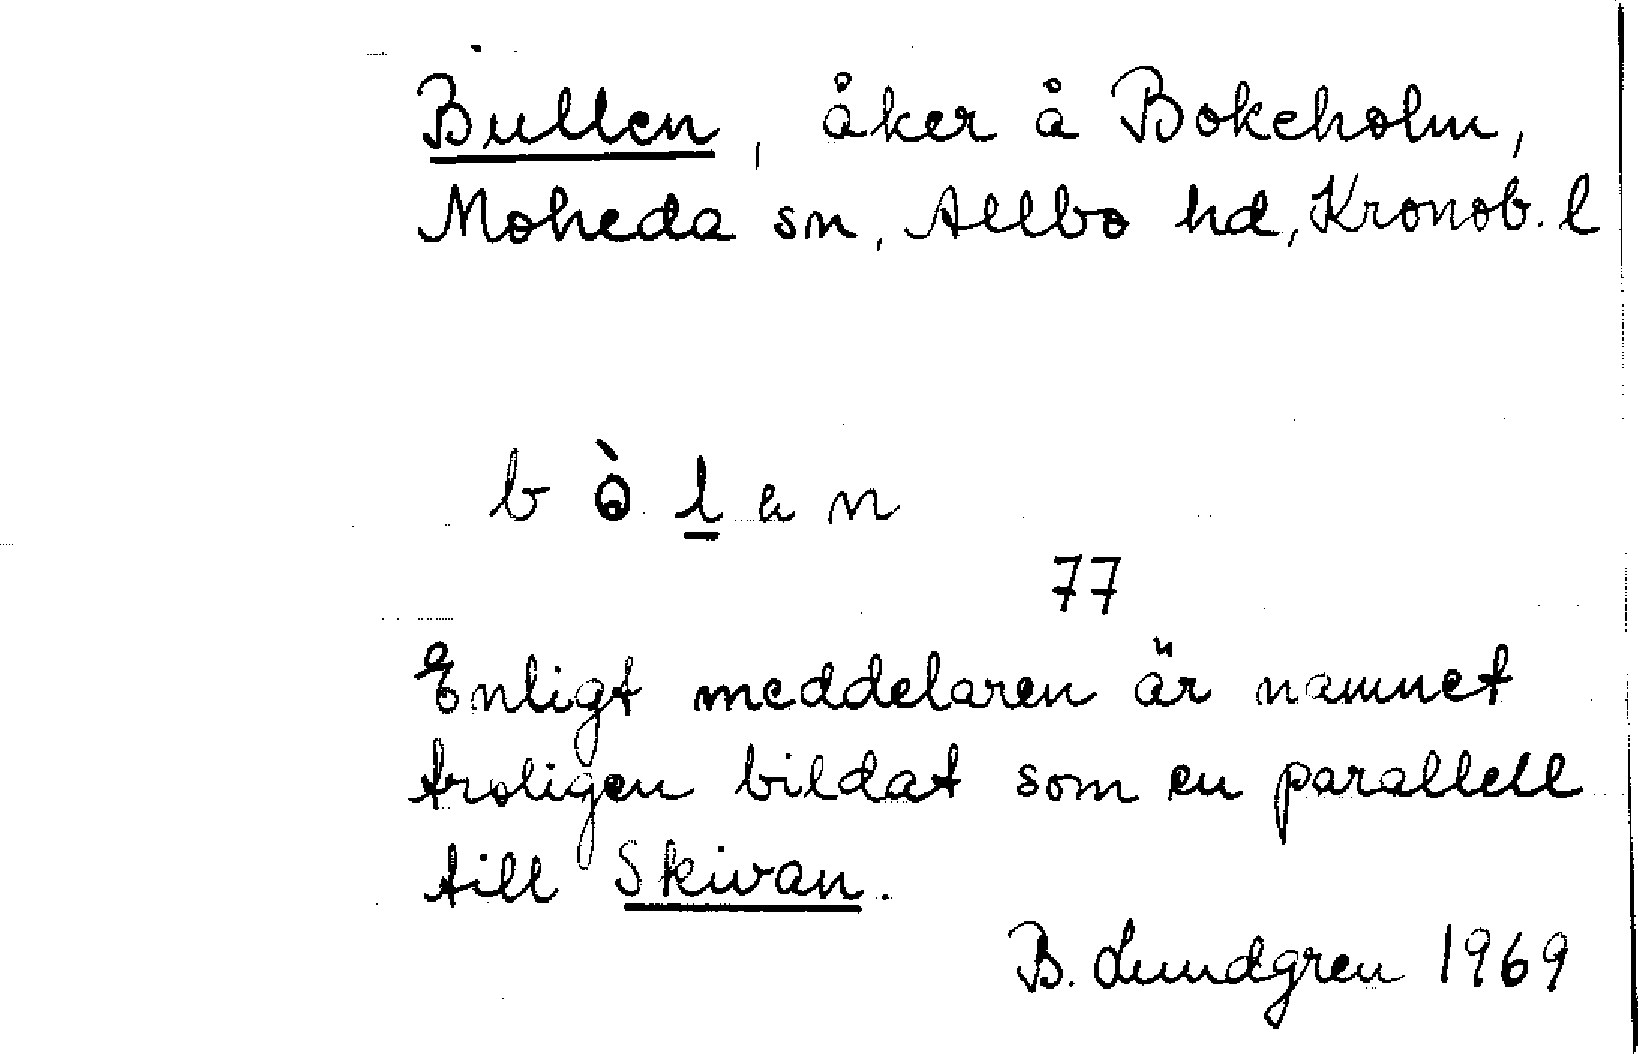 Bullen, åker å Bokeholm,
Moheda sn, Allbo hd, Kronob. l
b ò l a n
77
Enligt meddelaren är namnet
troligen bildat som en parallell
till Skivan.
B. Lundgren 1969